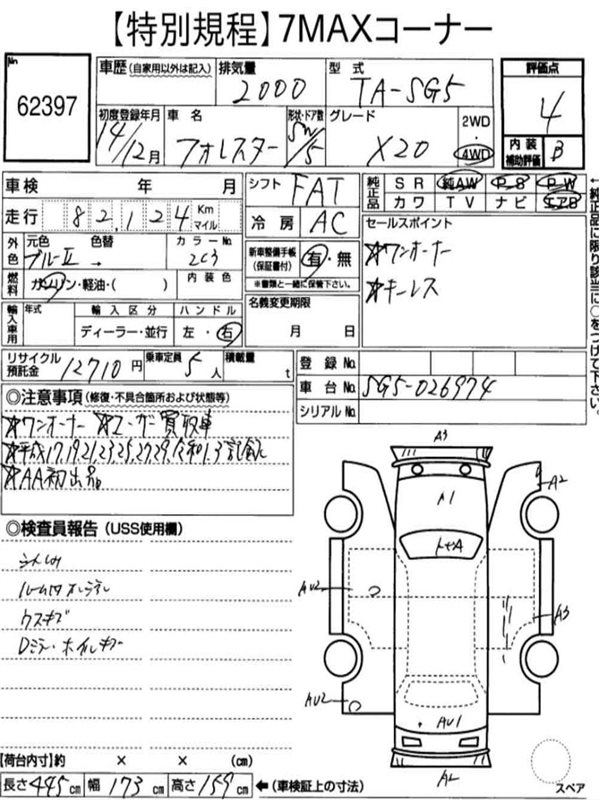 【特別規程】7MAXコーナー
No
62397
車歴 (自家用以外は記入) 排気量 2000 型式 TA-SG5
評価点 4
初度登録年月 14/12月 車名 フォレスター 形状・ドア数 SW/5 グレード X20 2WD・4WD
内装補助評価 B
車検 年 月
シフト FAT
純正品 SR 純AW PS PW
カワ TV ナビ エアB
走行 82,124 Km マイル
冷房 AC
セールスポイント
外色 元色 ブルーII 色替 → カラーNo. 2C3
新車整備手帳(保証書付) 有・無
※書類と一緒に保管下さい。
★ワンオーナー
★キーレス
燃料 ガソリン・軽油・( ) 内装色
名義変更期限
月 日
輸入車用 年式 輸入区分 ハンドル
ディーラー・並行 左・右
←純正品に限り該当に○をつけて下さい。
リサイクル預託金 12710円 乗車定員 5人 積載量 t
登録No.
車台No. SG5-026974
シリアルNo.
◎注意事項 (修復・不具合箇所および状態等)
★ワンオーナー ★ユーザー買取車
★平成17,19,21,23,25,27,29,令和1,3記録
★AA初出品
◎検査員報告 (USS使用欄)
シートしみ
ウスキズ
Dミラー・ホイルキズ
A3
A1
A2
AU2
A3
AU2
AU1
A2
【荷台内寸】約 × × (cm)
長さ 445cm 幅 173cm 高さ 159cm ←(車検証上の寸法)
スペア